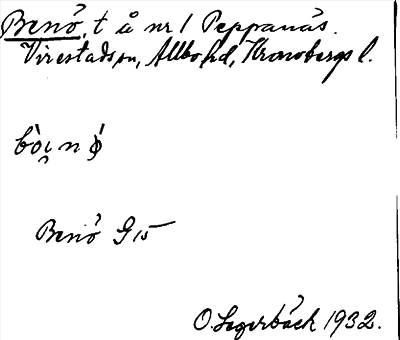 Benö, t å nr 1 Peppanäs.
Virestads sn, Allbo hd, Kronobergs l.
bòi̯nǿ
Benö G 15
O. Lagerbäck 1932.